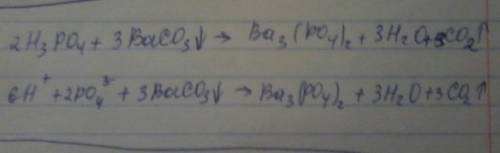 2H₃PO₄ + 3BaCO₃↓ → Ba₃(PO₄)₂ + 3H₂O + 3CO₂↑
6H⁺ + 2PO₄³⁻ + 3BaCO₃↓ → Ba₃(PO₄)₂ + 3H₂O + 3CO₂↑